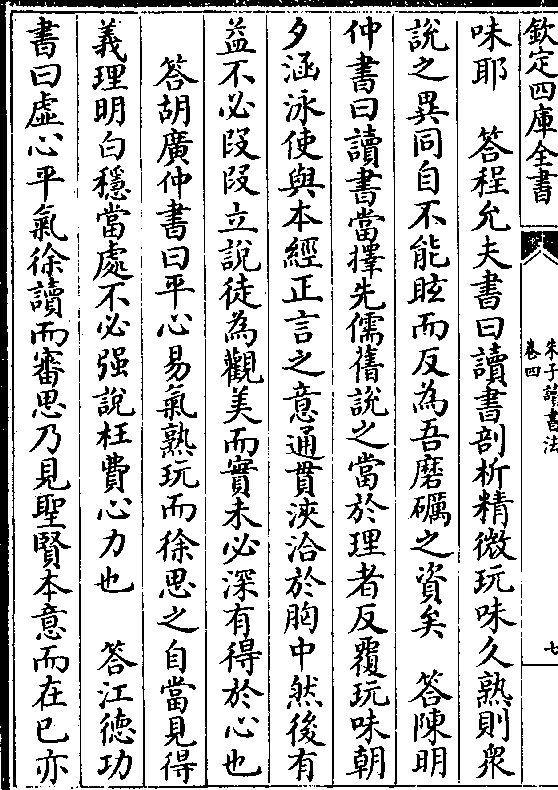 欽定四庫全書
朱子讀書法
卷四
七
味耶　答程允夫書曰讀書剖析精微玩味久熟則衆
說之異同自不能眩而反為吾磨礪之資矣　答陳明
仲書曰讀書當擇先儒舊說之當於理者反覆玩味朝
夕涵泳使與本經正言之意通貫浹洽於胸中然後有
益不必段段立說徒為觀美而實未必深有得於心也
答胡廣仲書曰平心易氣熟玩而徐思之自當見得
義理明白穩當處不必强說枉費心力也　答江徳功
書曰虚心平氣徐讀而審思乃見聖賢本意而在已亦